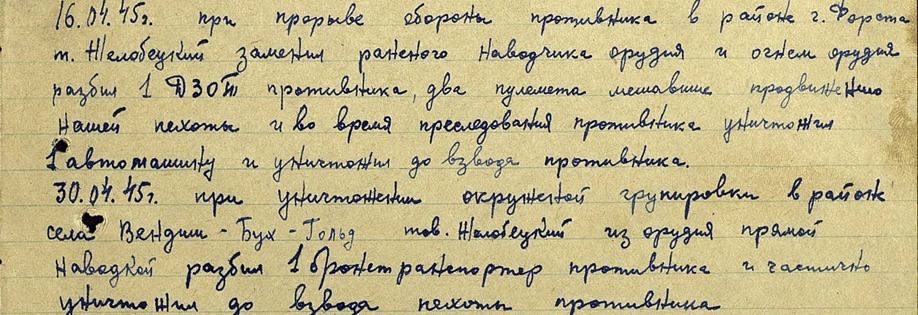 16.04.45г. при прорыве обороны противника в район г. Форста
т. Желобецкий заменил раненого наводчика орудия и огнем орудия
разбил 1 ДЗОТ противника, два пулемета мешавшие продвижению
нашей пехоты и во время преследования противника уничтожил
1 автомашину и уничтожил до взвода противника.
30.04.45г. при уничтожении окруженой групировки в район
села Вендиш-Бух-Гольд тов. Желобецкий из орудия прямой
наводкой разбил 1 бронетранспортер противника и частично
уничтожил до взвода пехоты противника